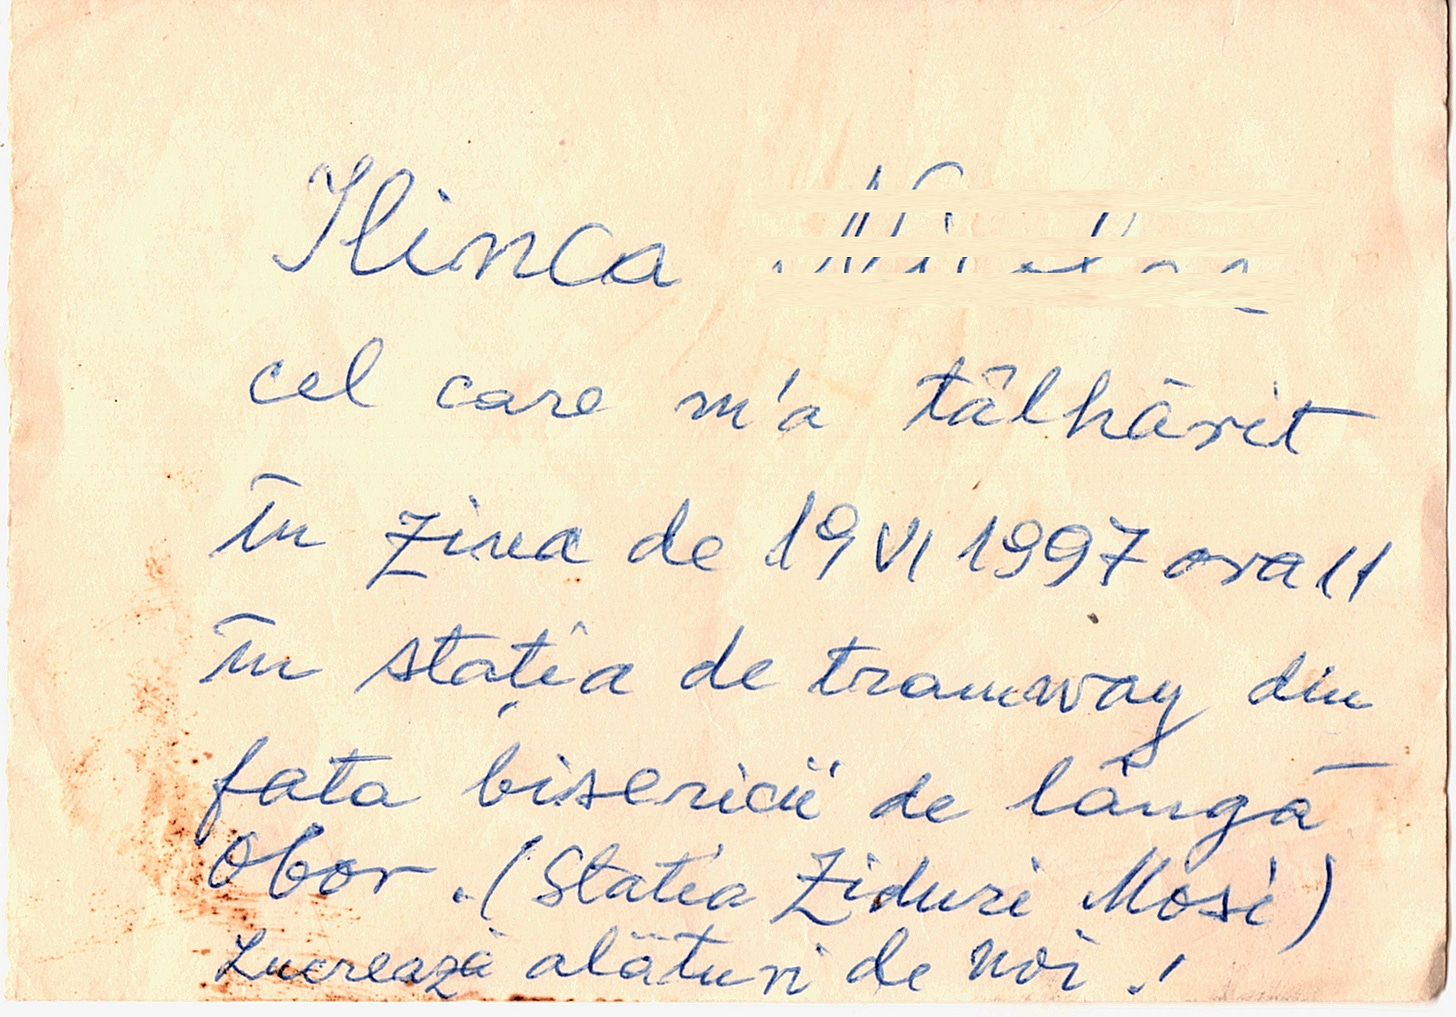 Ilinca
cel care m'a tâlhărit
în ziua de 19 VI 1997 ora 11
în stația de tramway din
fata bisericii de lângă
Obor. (Statia Ziduri Mosi)
Lucrează alături de noi!